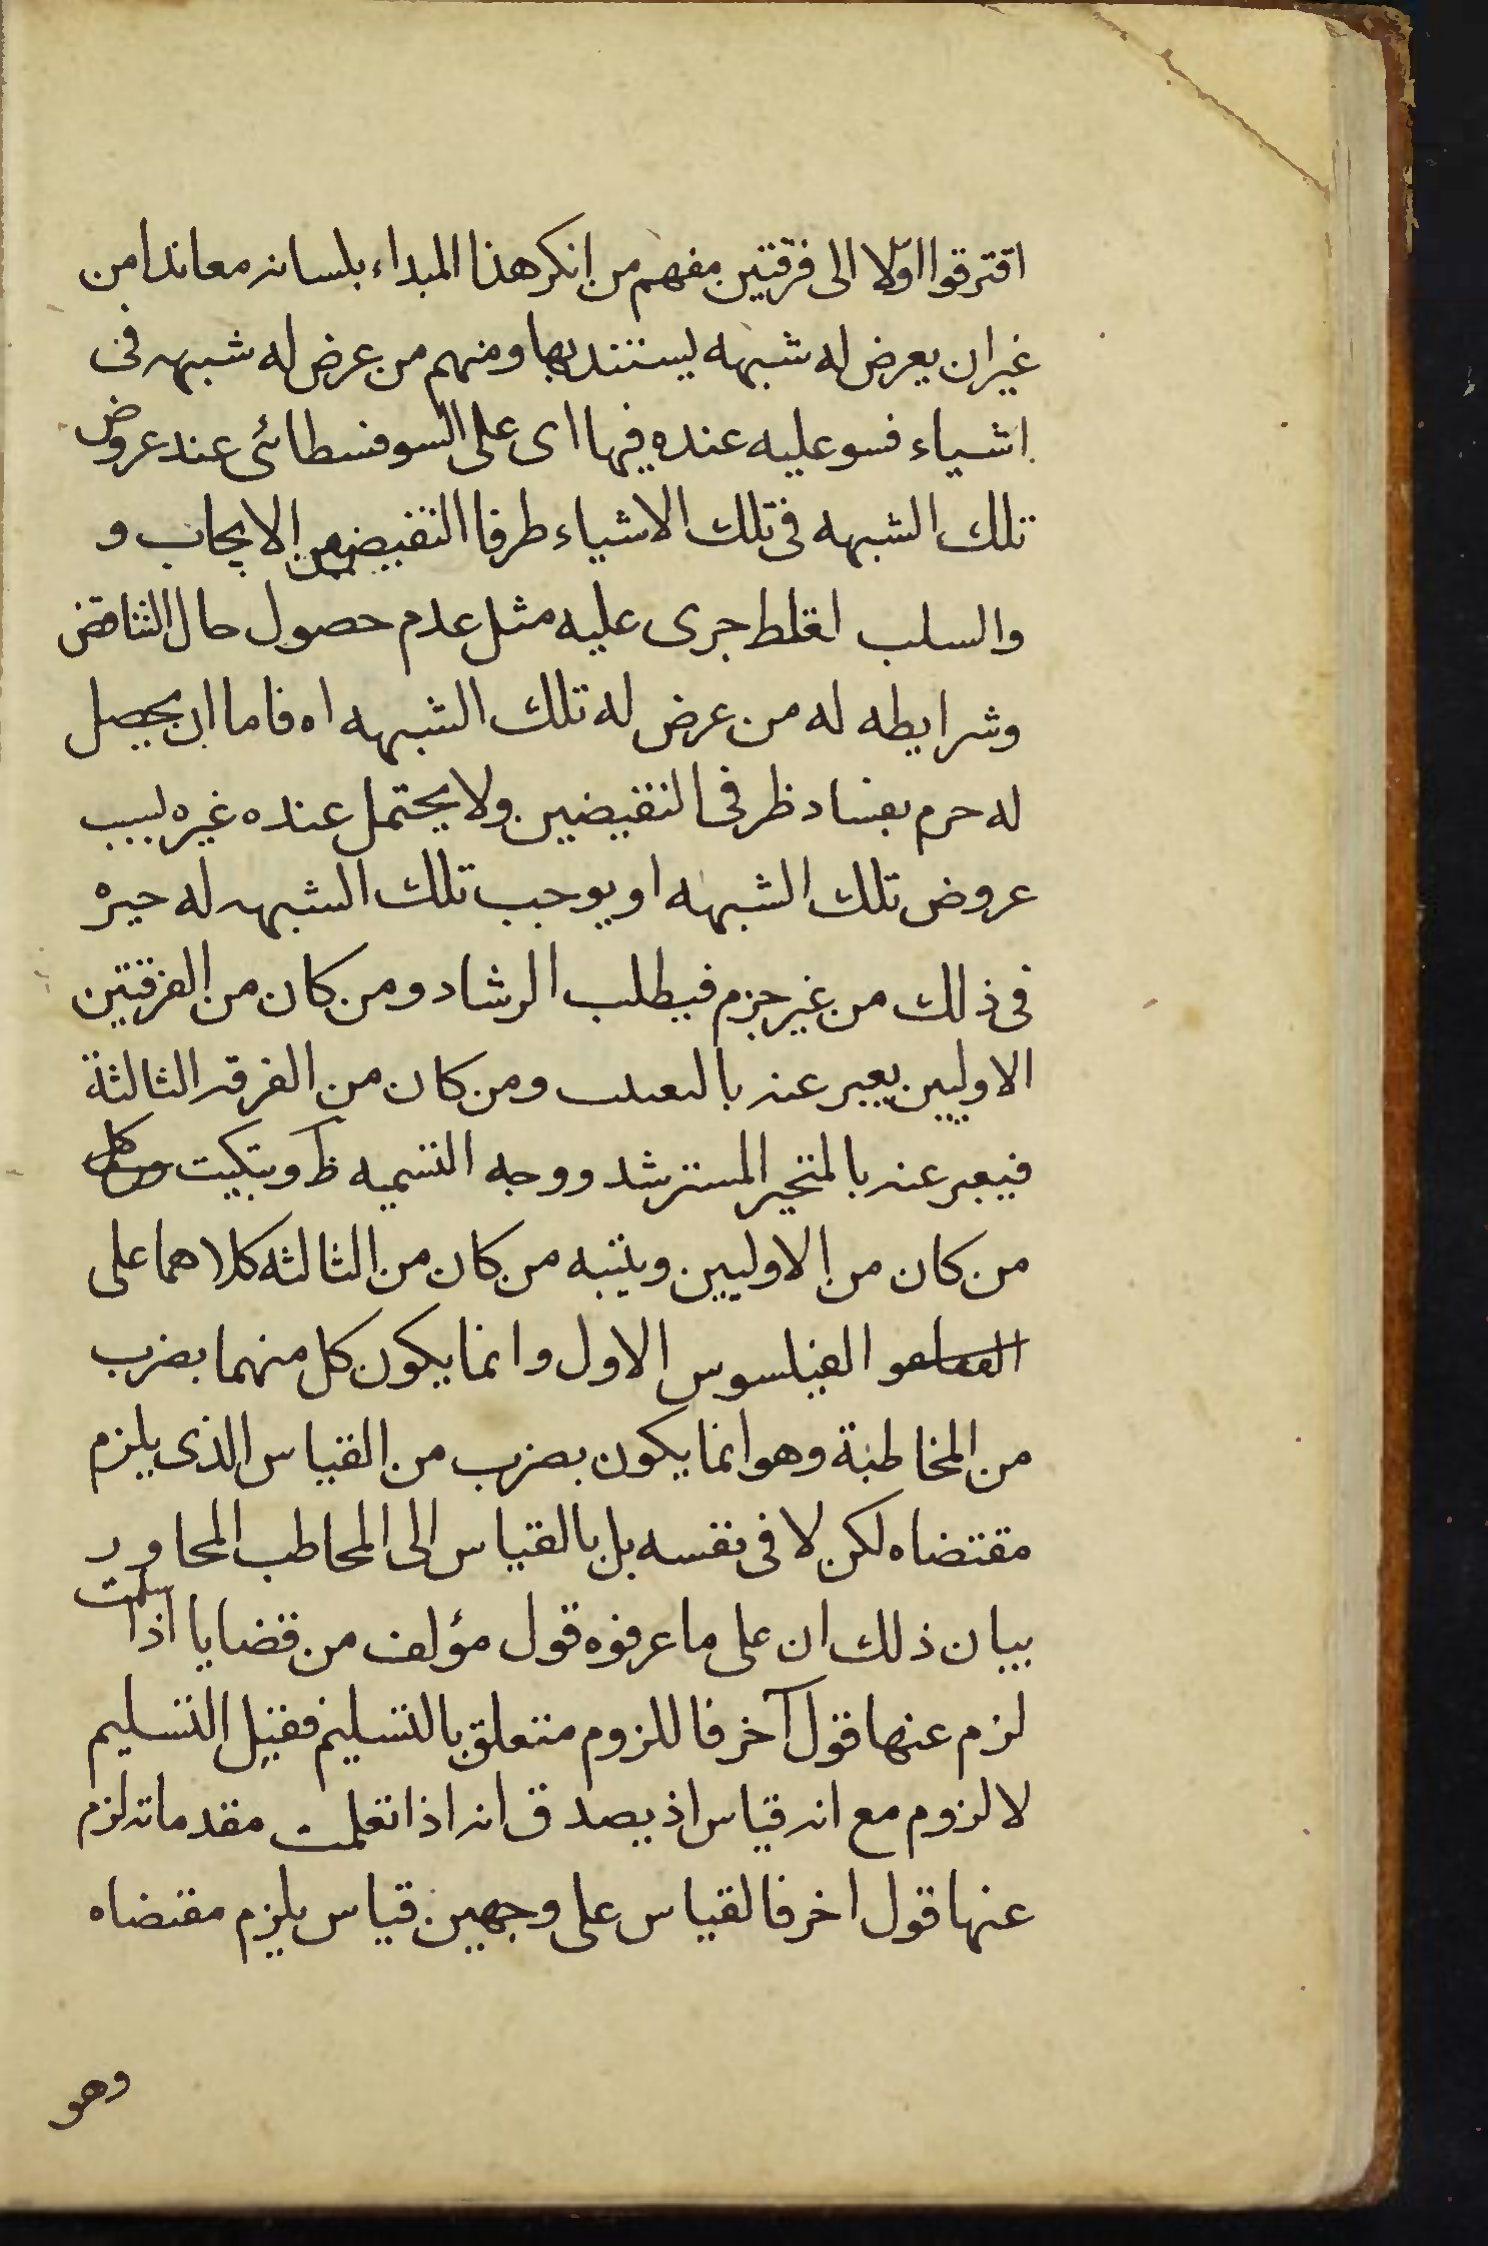 افترقوا اوّلا الى فرقتين فمنهم من انكر هذا المبداء بلسانه معاندا من
غير ان يعرض له شبهه يستند بها ومنهم من عرض له شبهه فى
اشياء فسو عليه عنده فيها اى على السوفسطائى عند عروض
تلك الشبهه فى تلك الاشياء طرفا النقيض من الايجاب و
والسلب لغلط جرى عليه مثل عدم حصول حال التناقض
وشرايطه له من عرض له تلك الشبهه اه فاما ان يحصل
له جزم بفساد طرفى النقيضين ولا يحتمل عنده غيره لسبب
عروض تلك الشبهه او يوجب تلك الشبهه له حيره
فى ذلك من غير جزم فيطلب الرشاد ومن كان من الفرقتين
الاوليين يعبر عنه ومن كان من الفرقه الثالثة
فيعبر عنه بالمتحير المسترشد ووجه التسميه ظ وتبكيت كل
من كان من الاوليين وتنبه من كان من الثالثه كلاهما على
الفيلسوس الاول وانما يكون كل منهما بضرب
من المخاطبة وهو انما يكون بضرب من القياس الذى يلزم
مقتضاه لكن لا فى نفسه بل بالقياس الى المخاطب المحاور
بيان ذلك ان على ما عرفوه قول مؤلف من قضايا اذا سلمت
لزم عنها قول آخر فاللزوم متعلق بالتسليم فقبل التسليم
لا لزوم مع انه قياس اذ يصدق انه اذا تعلمت مقدماته لزم
عنها قول اخر فالقياس على وجهين قياس يلزم مقتضاه
وهو